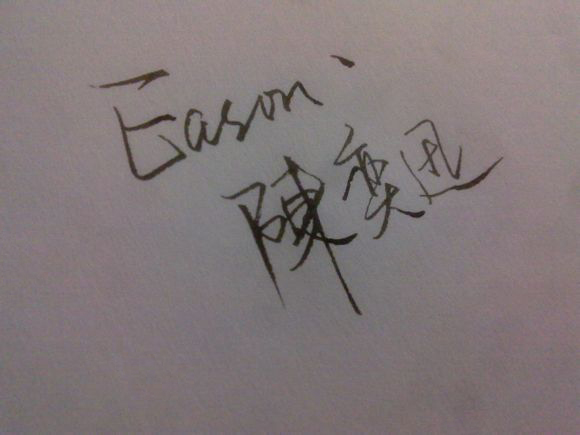 Eason
陳奕迅